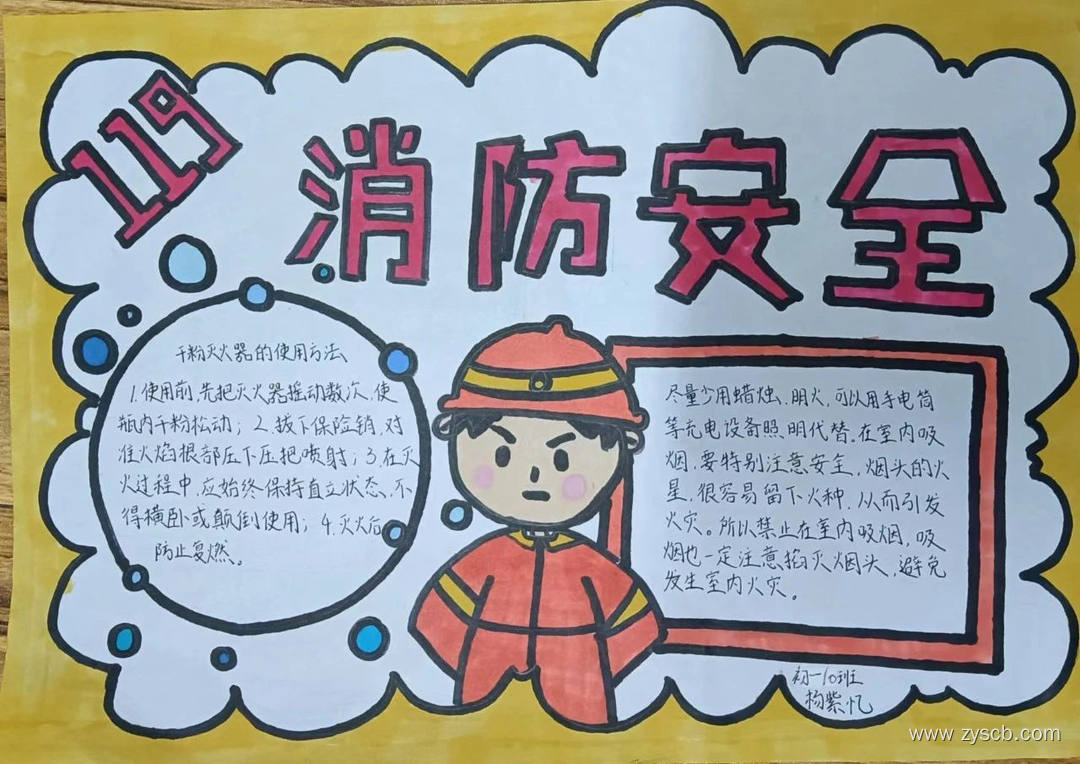 119
消防安全
干粉灭火器的使用方法
1.使用前,先把灭火器摇动数次,使
瓶内干粉松动；2.拔下保险销,对
准火焰根部压下压把喷射；3.在灭
火过程中,应始终保持直立状态,不
得横卧或颠倒使用；4.灭火后
防止复燃。
尽量少用蜡烛、明火,可以用手电筒
等充电设备照明代替。在室内吸
烟,要特别注意安全,烟头的火
星,很容易留下火种,从而引发
火灾。所以禁止在室内吸烟,吸
烟也一定注意掐灭烟头,避免
发生室内火灾。
初一10班
杨紫忆
www.zyscb.com